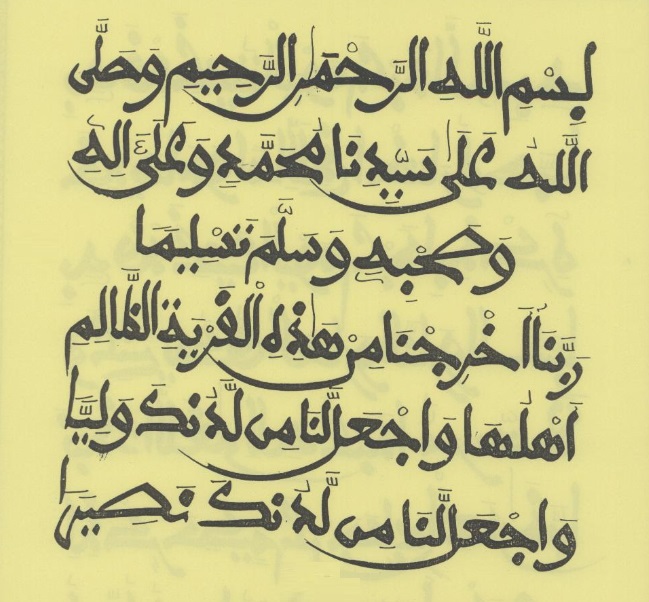 بِسْمِ اللَّهِ الرَّحْمَٰنِ الرَّحِيمِ وَصَلَّى
اللَّهُ عَلَى سَيِّدِنَا مُحَمَّدٍ وَعَلَى آلِهِ
وَصَحْبِهِ وَسَلَّمَ تَسْلِيمَا
رَبَّنَا أَخْرِجْنَا مِنْ هَٰذِهِ الْقَرْيَةِ الظَّالِمِ
أَهْلُهَا وَاجْعَل لَّنَا مِن لَّدُنكَ وَلِيًّا
وَاجْعَل لَّنَا مِن لَّدُنكَ نَصِيرًا